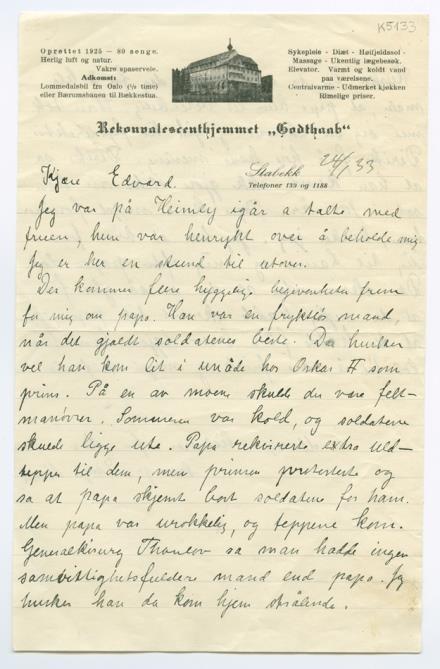 K5133
Oprettet 1925 - 80 senge.
Herlig luft og natur.
Vakre spaserveie.
Adkomst:
Lommedalsbil fra Oslo (½ time)
eller Bærumsbanen til Rækkestun.
Sykepleie - Diæt - Høifjeldssol -
Massage - Ukentlig lægebesøk.
Elevator. Varmt og koldt vand
paa værelsene.
Centralvarme - Udmerket kjøkken
Rimelige priser.
Rekonvalescenthjemmet „Godthaab"
Stabekk 24/1 33
Telefoner 139 og 1188
Kjære Edvard.
Jeg var på Heimly igår a talte med
fruen, hun var henrykt over å beholde mig
Jeg er her en stund til utover.
Der kommer flere hyggelige begivenheter frem
for mig om papa. Han var en frygtløs mand,
når det gjaldt soldatenes beste. Du husker
vel han kom lit i unåde hos Oskar II som
prins. På en av moene skulde du være felt-
manøvrer. Sommeren var kold, og soldatene
skulde ligge ute. Papa rekvirerte extra uld-
tepper til dem, men prinsen protesterte og
sa at papa skjemte bort soldatene for ham.
Men papa var urokkelig, og teppene kom.
Generalkirurg Thaulow sa man hadde ingen
samvittighetsfuldere mand end papa. Jeg
husker han da kom hjem strålende.